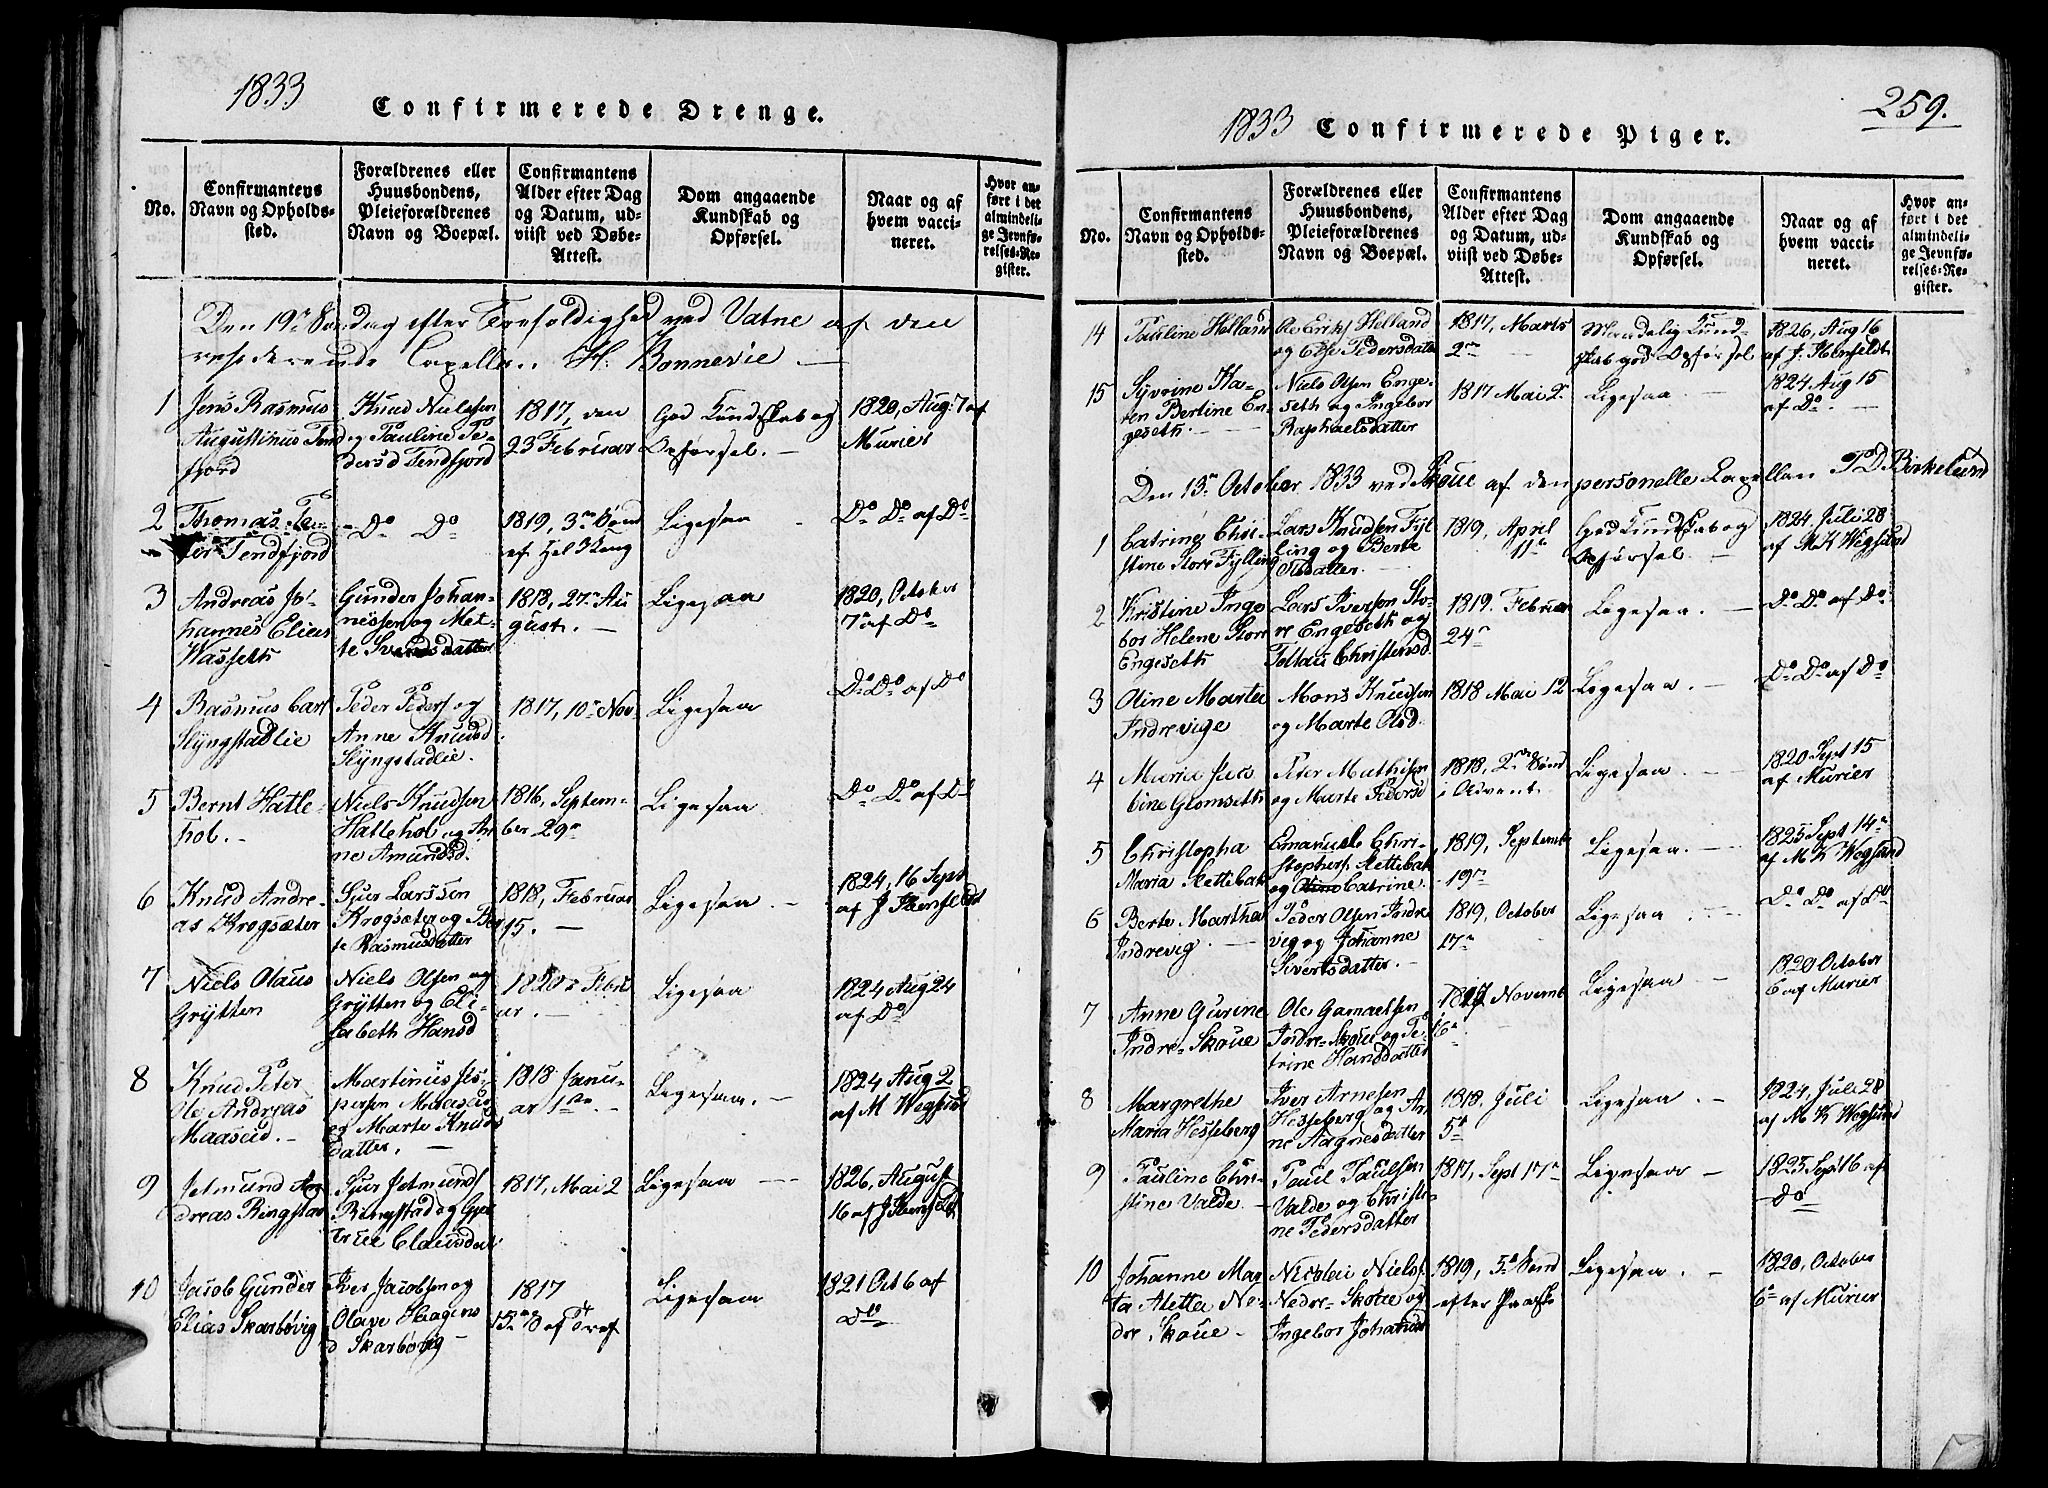 1833 Confirmerede Drenge.
No.
Confirmantens
Navn og Opholds-
sted.
Forældrenes eller
Huusbondens,
Pleieforældrenes
Navn og Boepæl.
Confirmantens
Alder efter Dag
og Datum, ud-
viist ved Døbe-
Attest.
Dom angaaende
Kundskab og
Opførsel.
Naar og af
hvem vacci-
neret.
Hvor an-
ført i det
almindeli-
ge Jevnfø-
relses-Re-
gister.
Den 19n Søndag efter Trefoldighed ved Vatne af den
residerende Capellan H. Bonnevie —
1
Jens Rasmus
Augustinus Tend
fjord
Knud Nielssen
og Pauline Pe-
dersd Tendfjord
1817, den
23 Februar
God Kundskab og
Opførsel. —
1820, Aug: 7 af
Murier
2
Thomas Pe-
ter Tendfjord
— Do Do
1819, 3n Sønd
af Hel 3 Kong
Ligesaa
Do Do af Do
3
Andreas Jo-
hannes Elias
Wasseth
Gunder Johan-
nessen og Met-
te Svendsdatter
1818, 27n Au
gust. —
Ligesaa
1820, October
7n af Do
4
Rasmus Carl
Slyngstadlie
Peder Peders og
Anne Knudsd
Slyngstadlie.
1817, 10n Nov.
Ligesaa
Do Do af Do
5
Bernt Hatle-
hol. —
Niels Knudsen
Hatlehol og An
ne Amundsd.
1816, Septem-
ber 29n
Ligesaa
Do Do af Do
6
Knud Andre-
as Krogsæter
Sjur Larssen
Krogsæter og Ber
te Rasmusdatter
1818, Februar
15. —
Ligesaa. —
1824, 16 Sept
af J
7
Niels Olaus
Grytten
Niels Olsen og
Grytten og Eli-
sabeth Hansd
Febru
ar. —
Ligesaa
1824 Aug 24
af Do
8
Knud Peter
Ole Andreas
Maasud. —
Martinus Jis-
persen Maasud
og Marte Knuds
datter. —
1818 Janu-
ar 1ste —
Ligesaa. —
1824 Aug 2
af M Wegsund
9
Jetmund An
dreas Ringstad
Sjur Jetmunds
Ringstad og Gjer
true Clausdat
1817, Mai 2
Ligesaa —
1826, August
16 af J
10
Jacob Gunder
Elias Skarbøvig
Iver Jacobsen og
Olave Haagens
d Skarbøvig —
1817
Ligesaa
1821 Oct 6 af
Do
259.
1833 Confirmerede Piger.
No.
Confirmantens
Navn og Opholds-
sted.
Forældrenes eller
Huusbondens,
Pleieforældrenes
Navn og Boepæl.
Confirmantens
Alder efter Dag
og Datum, ud-
viist ved Døbe-
Attest.
Dom angaaende
Kundskab og
Opførsel.
Naar og af
hvem vacci-
neret.
Hvor an-
ført i det
almindeli-
ge Jevnfø-
relses-Re-
gister.
14
Pauline Helland
Ole Eriks Helland
og Else Pedersdatter
1817, Marts
2n —
Maadelig Kund-
skab god Opførsel
1826, Aug 16
af J.
15
Syvrine Ka-
ren Bertine En-
geseth. —
Niels Olsen Enge-
seth og Ingebor
Raphaelsdatter
1817 Mai 2n
Ligesaa —
1824 Aug 15
af Do. —
Den 13n October 1833 ved Skoue af den personelle Capellan P D Birkelund
1
Catrine Chri-
stine Store Fylling
Lars Knudsen Fyl
ling og Berte
Olsdatter.
1819, April
11te
God Kundskab og
Opførsel. —
1824, Juli 28
af M K Wegsund
2
Kristine Inge
bor Helene Store
Engeseth
Lars Iversen Sto-
re Engeseth og
Christensd.
1819. Februar
24n
Ligesaa. —
Do Do af Do
3
Oline Marta
Indrevige
Mons Knudsen
og Marte Olsd.
1818 Mai 12
Ligesaa. —
Do Do af Do
4
Maria Jaco
bine Glomseth
Peter Mathisen
og Marte Pedersd
1818, 2den Sønd
i Advent.
Ligesaa. —
1820 Sept 15
af Murier
5
Christopha
Maria Slettebak
Emanuel Chri-
stophers. Slettebak
og Catrine.
1819, Septembr
19n
Ligesaa. —
1825 Sept 14n
af M K Wegsund
6
Berte Martha
Indrevig. —
Peder Olsen Indre
vig og Johanne
Sivertsdatter. —
1819, October
17n
Ligesaa
Do Do af Do
7
Anne Gurine
Indre-Skoue
Ole Gamaelsen
Indre-Skoue og Pe-
trine Hansdatter
Novemb
16n.
Ligesaa —
1820 October
6 af Murier
8
Margrethe
Maria Hesseberg
Iver Arnesen
Hesseberg og An
ne Aagnesdatter
1818, Juli
5te
Ligesaa. —
1824, Juli 28
af M K Wegsund
9
Pauline Chri-
stine Valde —
Paul Paulsen
Valde og Christi-
ne Pedersdatter
1817, Sept 17n
Ligesaa —
1825 Sept 6 af
Do
10
Johanne Mar
ta Aletta Ne-
dre, Skoue —
Nicolai Niels.
Nedre-Skoue og
Ingebor Johansd
1819, 5te Sønd
efter Paaske
Ligesaa. —
1820, October
6n af Murier